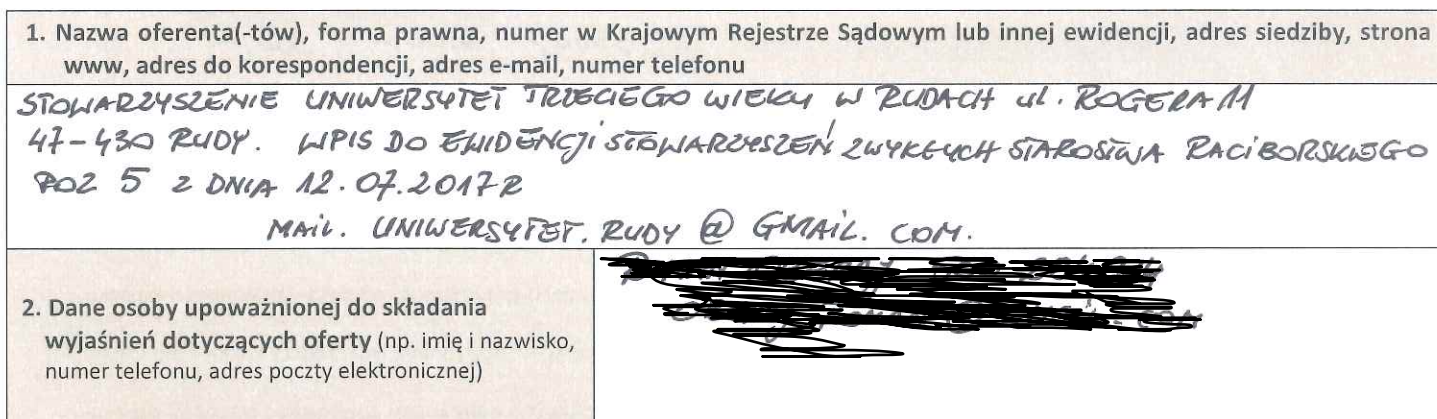 1. Nazwa oferenta(-tów), forma prawna, numer w Krajowym Rejestrze Sądowym lub innej ewidencji, adres siedziby, strona
www, adres do korespondencji, adres e-mail, numer telefonu
STOWARZYSZENIE UNIWERSYTET TRZECIEGO WIEKU W RUDACH ul. ROGERA 11
47-430 RUDY. WPIS DO EWIDENCJI STOWARZYSZEŃ ZWYKŁYCH STAROSTWA RACIBORSKIEGO
POZ 5 Z DNIA 12.07.2017R
MAIL. UNIWERSYTET.RUDY @ GMAIL.COM.
2. Dane osoby upoważnionej do składania
wyjaśnień dotyczących oferty (np. imię i nazwisko,
numer telefonu, adres poczty elektronicznej)